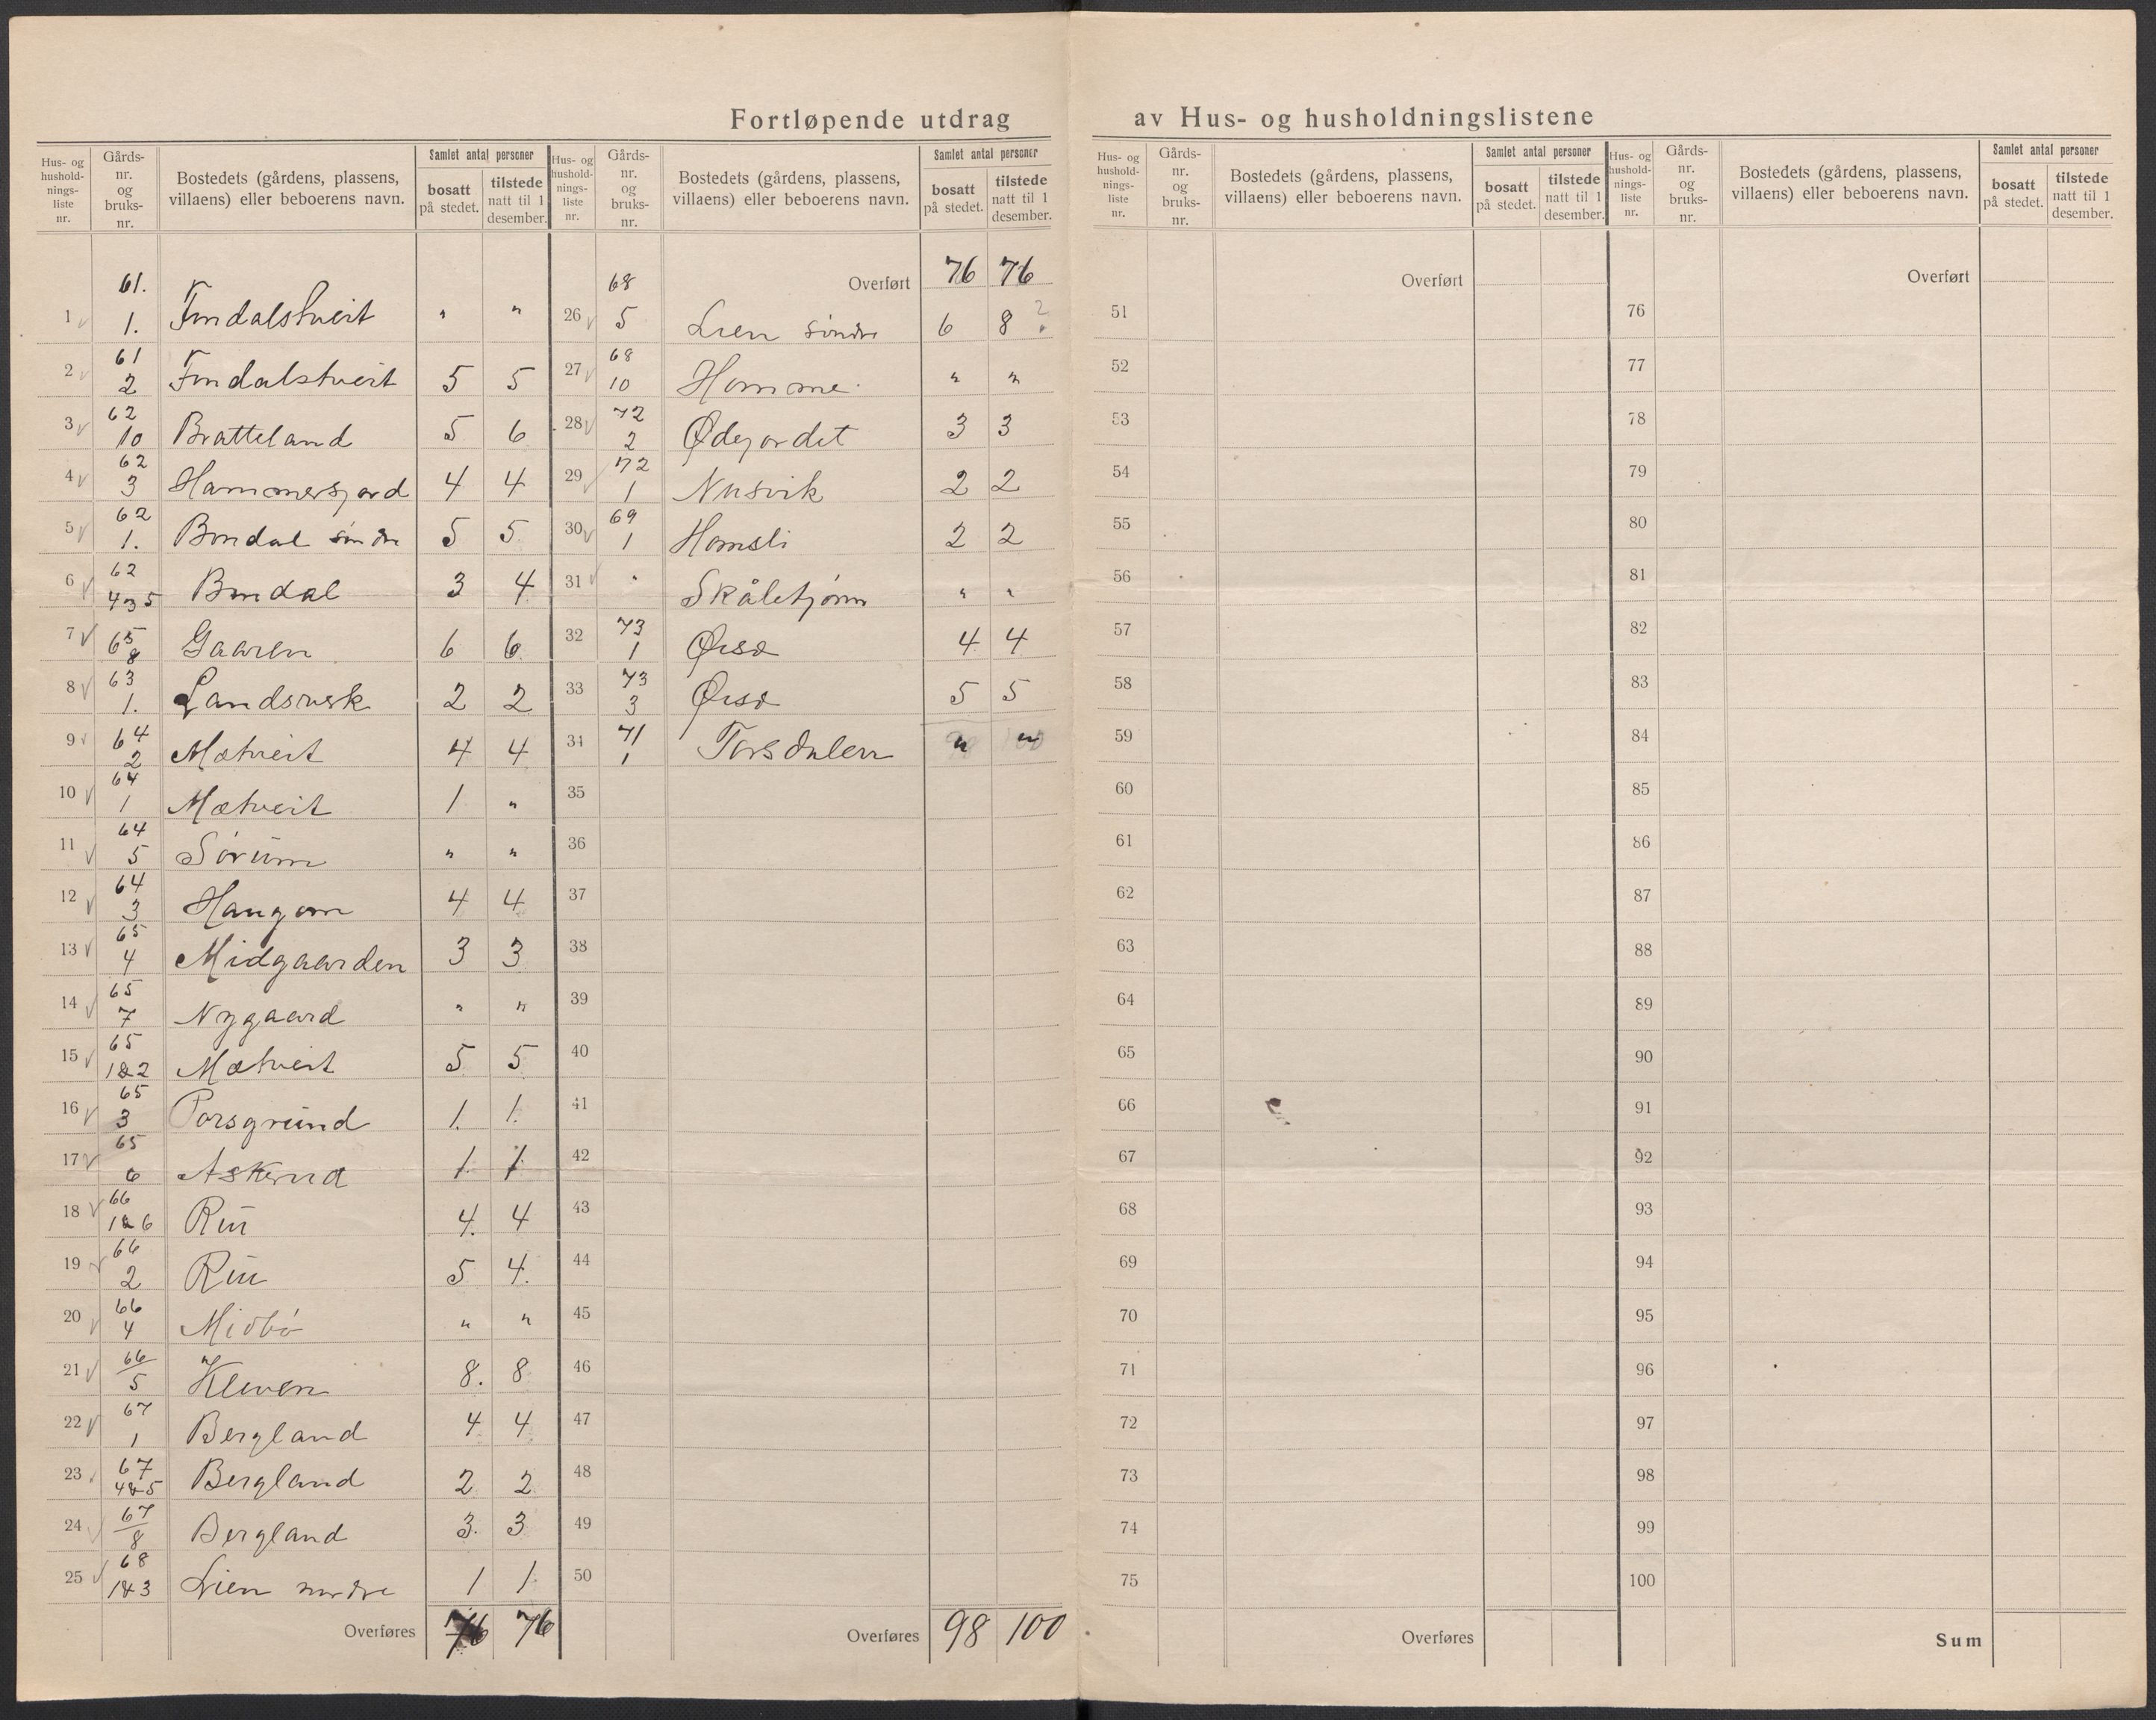 Fortløpende utdrag av Hus- og husholdningslistene
Hus- og hushold-nings-liste nr. Gårds-nr. og bruks-nr. Bostedets (gårdens, plassens, villaens) eller beboerens navn. Samlet antal personer bosatt på stedet. tilstede natt til 1 desember.
1 61. 1. Findalstveit " "
2 61 2 Findalstveit 5 5
3 62 10 Bratteland 5 6
4 62 3 Hammersjord 4 4
5 62 1. Bondal søndre 5 5
6 62 4 5 Bondal 3 4
7 65 8 Gaaren 6 6
8 63 1. Landsverk 2 2
9 64 2 Mætveit 4 4
10 64 1 Mætveit 1 "
11 64 5 Sørum " "
12 64 3 Haugom 4 4
13 65 4 Midgaarden 3 3
14 65 7 Nygaard " "
15 65 1&2 Mætveit 5 5
16 65 3 Porsgrund 1. 1.
17 65 6 Askerud 1. 1
18 66 1&6 Rui 4. 4
19 66 2 Rui 5 4.
20 66 4 Midbö " "
21 66/5 Kleven 8. 8
22 67 1 Bergland 4 4
23 67 4&5 Bergland 2 2
24 67/8 Bergland 3. 3
25 68 1&3 Lien nordre 1 1
Overføres 76 76
Hus- og hushold-nings-liste nr. Gårds-nr. og bruks-nr. Bostedets (gårdens, plassens, villaens) eller beboerens navn. Samlet antal personer bosatt på stedet. tilstede natt til 1 desember.
Overført 76 76
26 68 5 Lien søndre 6 8 ?
27 68 10 Homme. " "
28 72 2 Ødegordet 3 3
29 72 1 Nusvik 2 2
30 69 1 Homsli 2 2
31 " Skåletjønn " "
32 73 1 Ørsø 4 4
33 73 3 Ørsø 5 5
34 71 1 Torsdalen " "
35
36
37
38
39
40
41
42
43
44
45
46
47
48
49
50
Overføres 98 100
Hus- og hushold-nings-liste nr. Gårds-nr. og bruks-nr. Bostedets (gårdens, plassens, villaens) eller beboerens navn. Samlet antal personer bosatt på stedet. tilstede natt til 1 desember.
Overført
51
52
53
54
55
56
57
58
59
60
61
62
63
64
65
66
67
68
69
70
71
72
73
74
75
Overføres
Hus- og hushold-nings-liste nr. Gårds-nr. og bruks-nr. Bostedets (gårdens, plassens, villaens) eller beboerens navn. Samlet antal personer bosatt på stedet. tilstede natt til 1 desember.
Overført
76
77
78
79
80
81
82
83
84
85
86
87
88
89
90
91
92
93
94
95
96
97
98
99
100
Sum